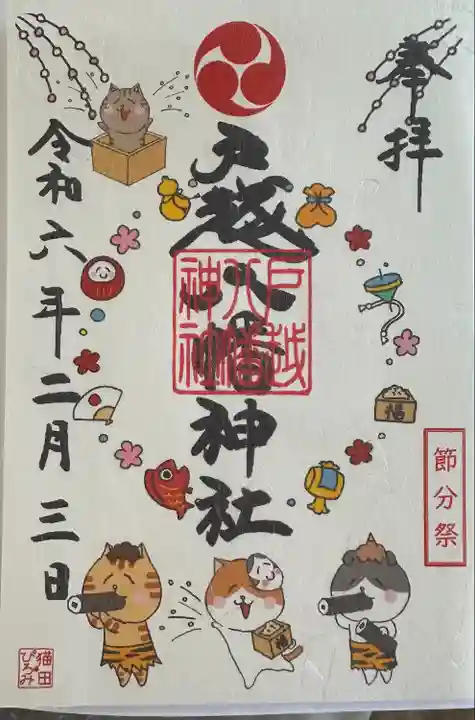 奉拝
戸越八幡神社
戸越
八幡
神社
福
節分祭
令和六年二月三日
福
猫田
ぴろみ